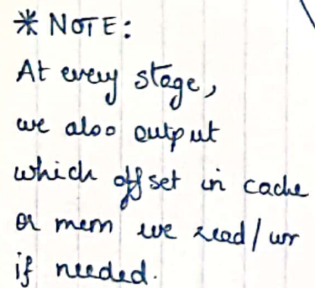 * NOTE:
At every stage,
we also output
which offset in cache
or mem we read/wr
if needed.